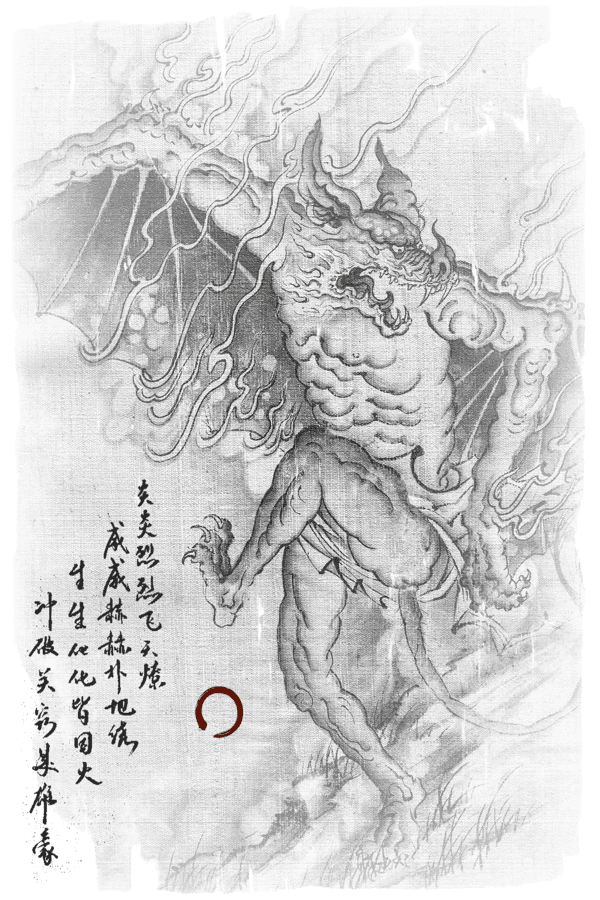 炎炎烈烈飞天燎
威威赫赫扑地烧
生生化化皆因火
冲破关窍雄豪